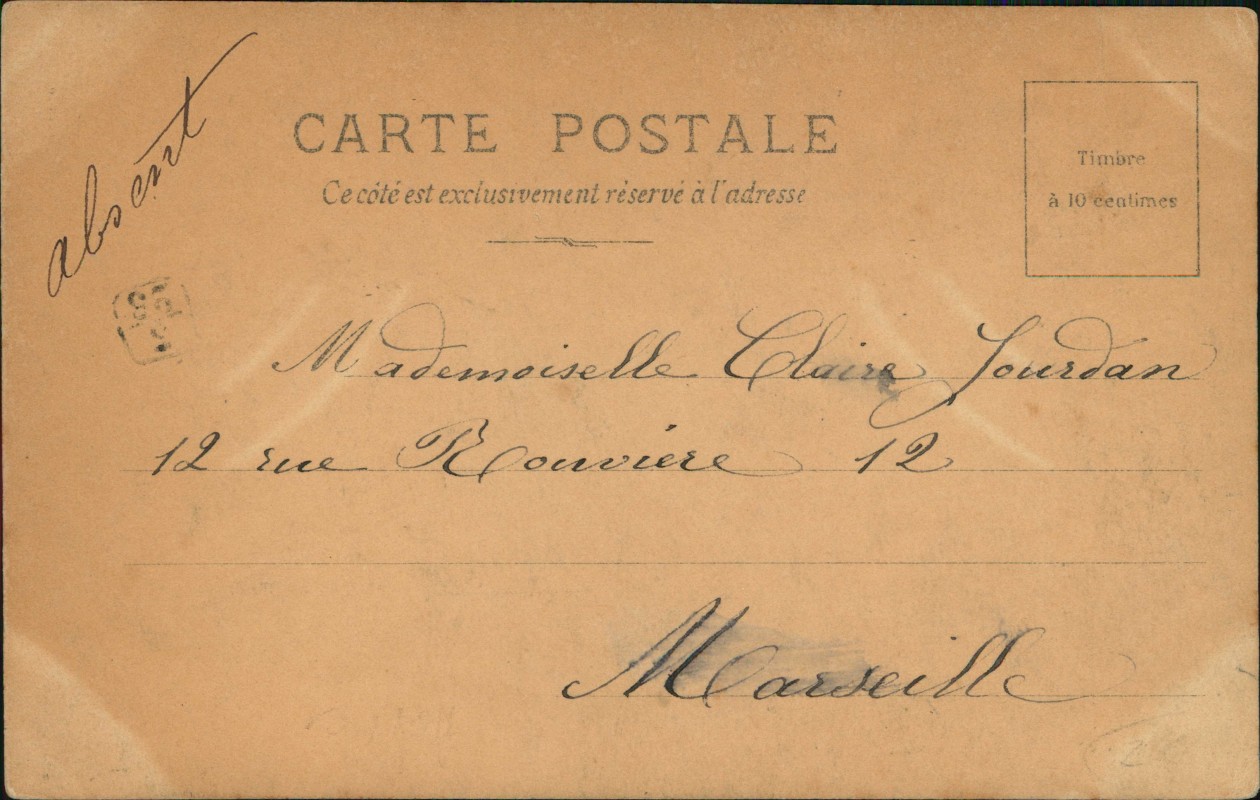 absent
CARTE POSTALE
Ce côté est exclusivement réservé à l'adresse
Timbre
à 10 centimes
Mademoiselle Claire Jourdan
12 rue Rouvière 12
Marseille